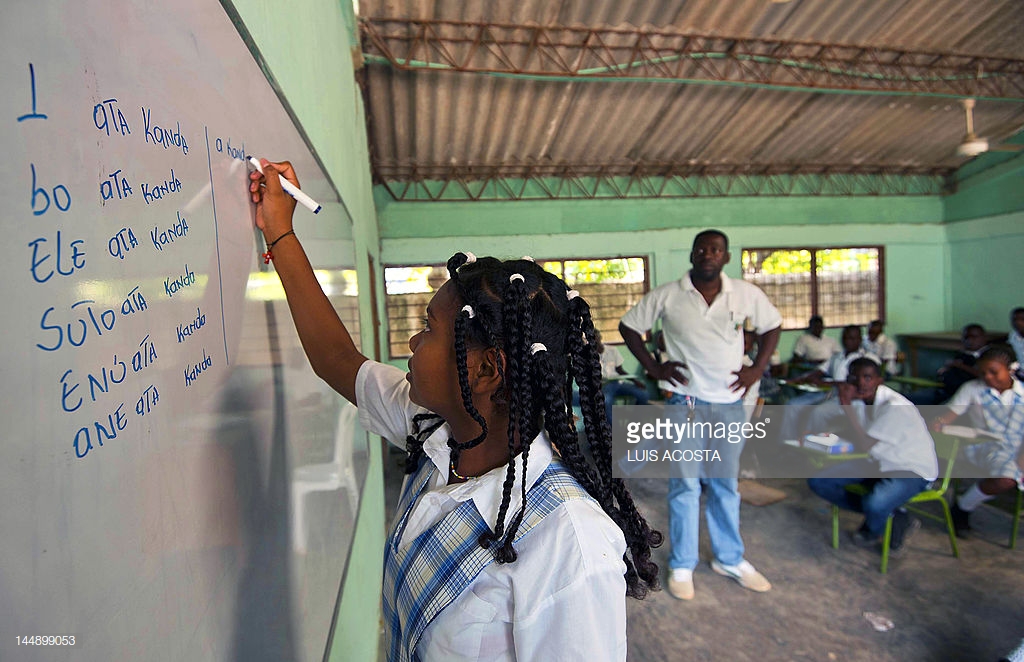 I ata kanda
a kand
bo ata kanda
ELE ata kanda
suto ata kanda
ENÚ ata kanda
ane ata kanda
gettyimages®
LUIS ACOSTA
144899053